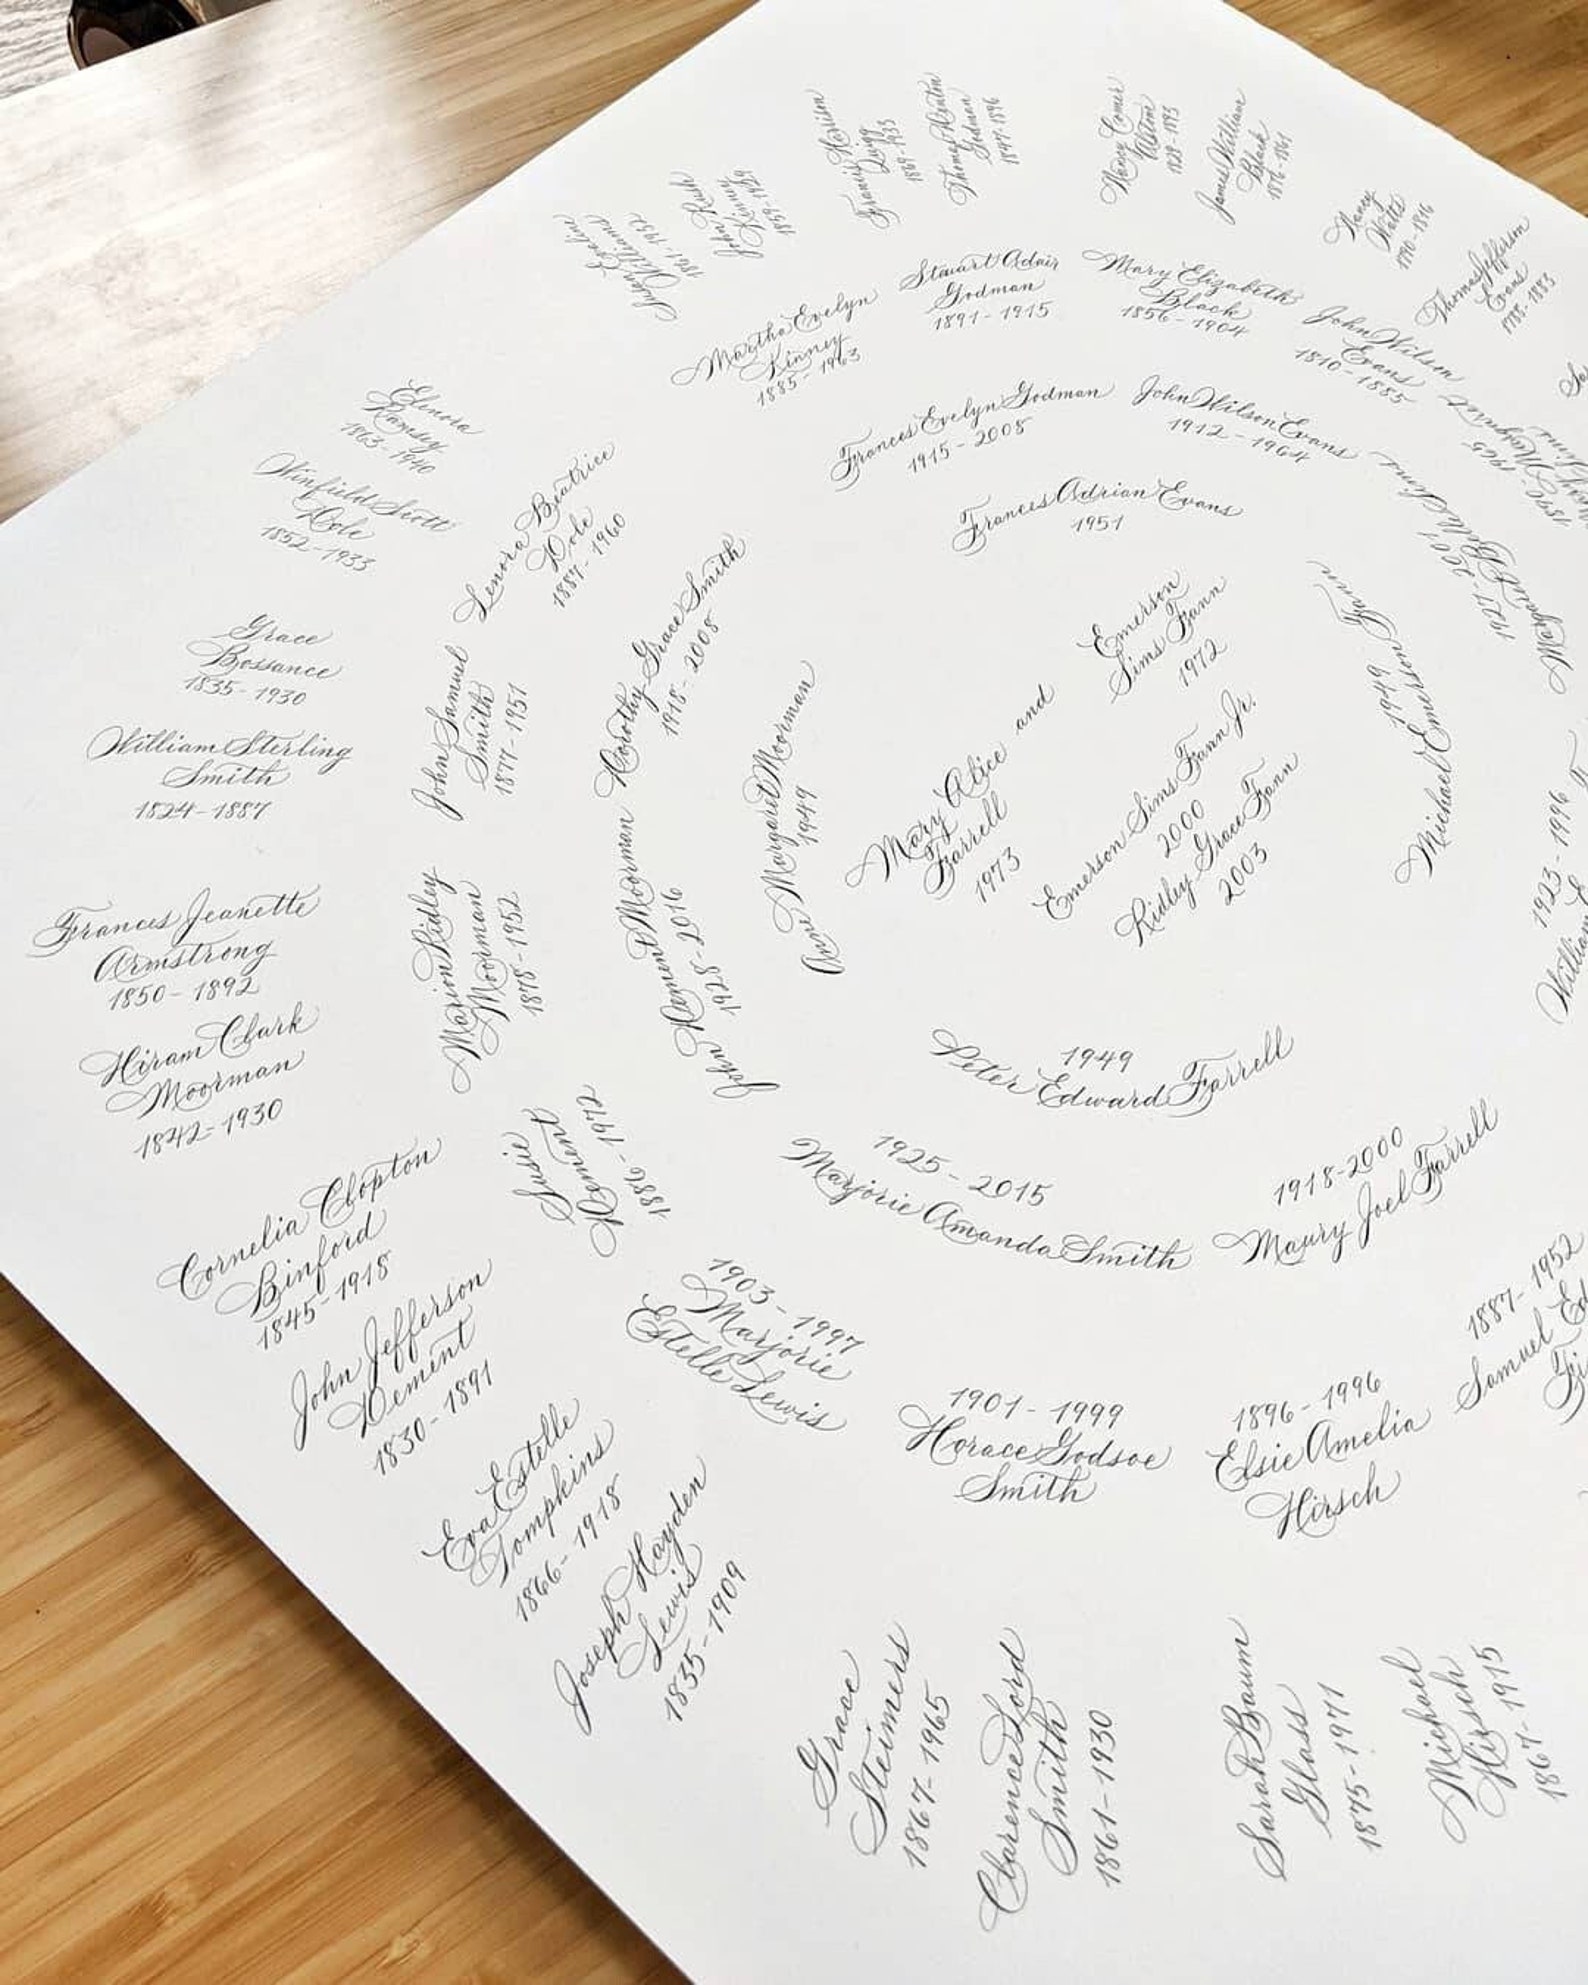 Mary Alice
Farrell
1973
and
Emerson
Sims Fann
1972
Emerson Sims Fann Jr.
2000
Ridley Grace Fann
2003
Frances Adrian Evans
1951
1949
Michael Emerson Fann
1949
Peter Edward Farrell
Anne Margaret Moorman
1949
Frances Evelyn Godman
1915 - 2008
John Wilson Evans
1912 - 1964
1927 - 2001
1923 - 1996
William
1918-2000
Maury Joel Farrell
1925 - 2015
Marjorie Amanda Smith
John Dement Moorman
1928 - 2016
Dorothy Grace Smith
1918 - 2008
Martha Evelyn
Kinney
1885 - 1963
Stuart Adair
Godman
1891 - 1915
Mary Elizabeth
Black
1856 - 1904
John Wilson
Evans
1810 - 1885
1887 - 1952
Samuel
1896 - 1996
Elsie Amelia
Hirsch
1901 - 1999
Horace Godsoe
Smith
1903 - 1997
Marjorie
Estelle Lewis
Susie
Dement
1886 - 1972
Marion Ridley
Moorman
1878 - 1952
John Samuel
Smith
1877 - 1951
Lenora Beatrice
Dole
1887 - 1960
Williams
John Rush
Kinney
1859 - 1929
Francis
1869 - 1933
Godman
1847 - 1896
Nancy Comer
1829 - 1893
James William
Black
Nancy
Watts
1790 - 1816
Thomas Jefferson
Evans
1788 - 1883
Elenora
Ramsey
1863 - 1940
Winfield Scott
Dole
1852 - 1933
Grace
Bossance
1835 - 1930
William Sterling
Smith
1824 - 1887
Frances Jeanette
Armstrong
1850 - 1892
Hiram Clark
Moorman
1842 - 1930
Cornelia Clopton
Binford
1845 - 1918
John Jefferson
Dement
1830 - 1891
Eva Estelle
Tompkins
1866 - 1918
Joseph Hayden
Lewis
1835 - 1909
Grace
Steimers
1867 - 1965
Clarence Lord
Smith
1861 - 1930
Sarah Baum
Glass
1875 - 1971
Michael
Hirsch
1867 - 1915